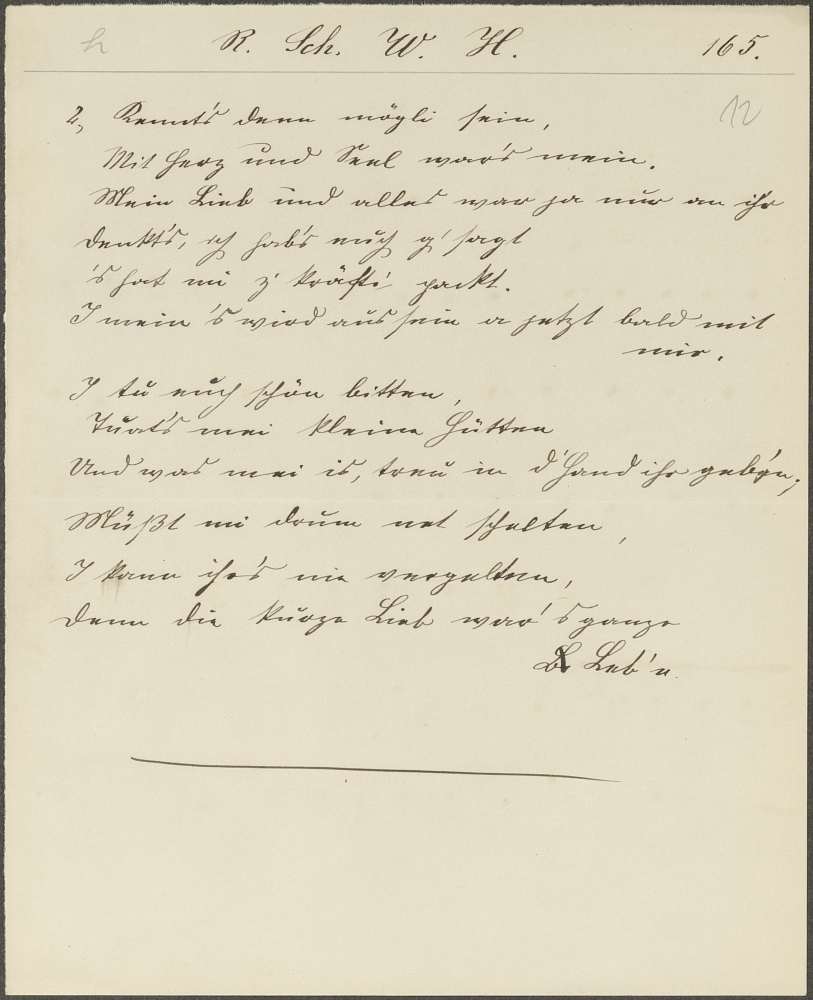 h R. Sch. W. H. 165.
12
2, Kennt's denn mögli sein,
Mit Herz und Seel war's mein.
Mein Lieb und alles war ja nur an ihr
Denkt's, ich hab's euch g'sagt
's hat mi z' kräfti' packt.
I mein 's wird aus sein a jetzt bald mit
mir.
I tu euch schön bitten,
Tuat's mei kleine Hütten
Und was mei is, treu in d'Hand ihr geb'n;
Müßt mi drum net schelten,
I kann ihr's nie vergelten,
Denn die kurze Lieb war's ganze
Leb'n.